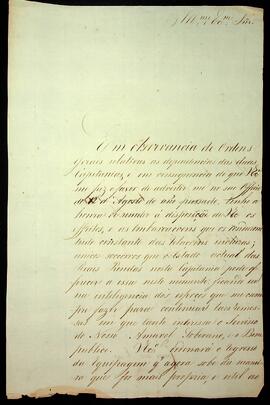 Ill.mo Ex.mo Snr.
Em observancia de Ordens
geraes relativas as dependencias das duas
Capitanias, e em consequencia do que V Ex.
me faz o favor de advertir me no seu Officio
de 12 d'Agosto do año passado, tenho a
honra de mandar á disposição de V Ex.a os
effeitos, e as embarcaçoens que os conduzem
tudo constante das Relaçoens inclusas;
unicos socorros que o Estado actual das
Reaes Rendas nesta Capitania pode of-
ferecer a esse neste momento, ficando V Ex.
na intelligencia dos esforços que me cum-
pre fazer para continuar as remes-
sas no que tanto interessa o Serviço
do Nosso Amavel Soberano, e o Bem
publico. V Ex.a ordenará o regresso
da Equipagem q' agora sobe da manei-
ra que for mais propria, e util ao